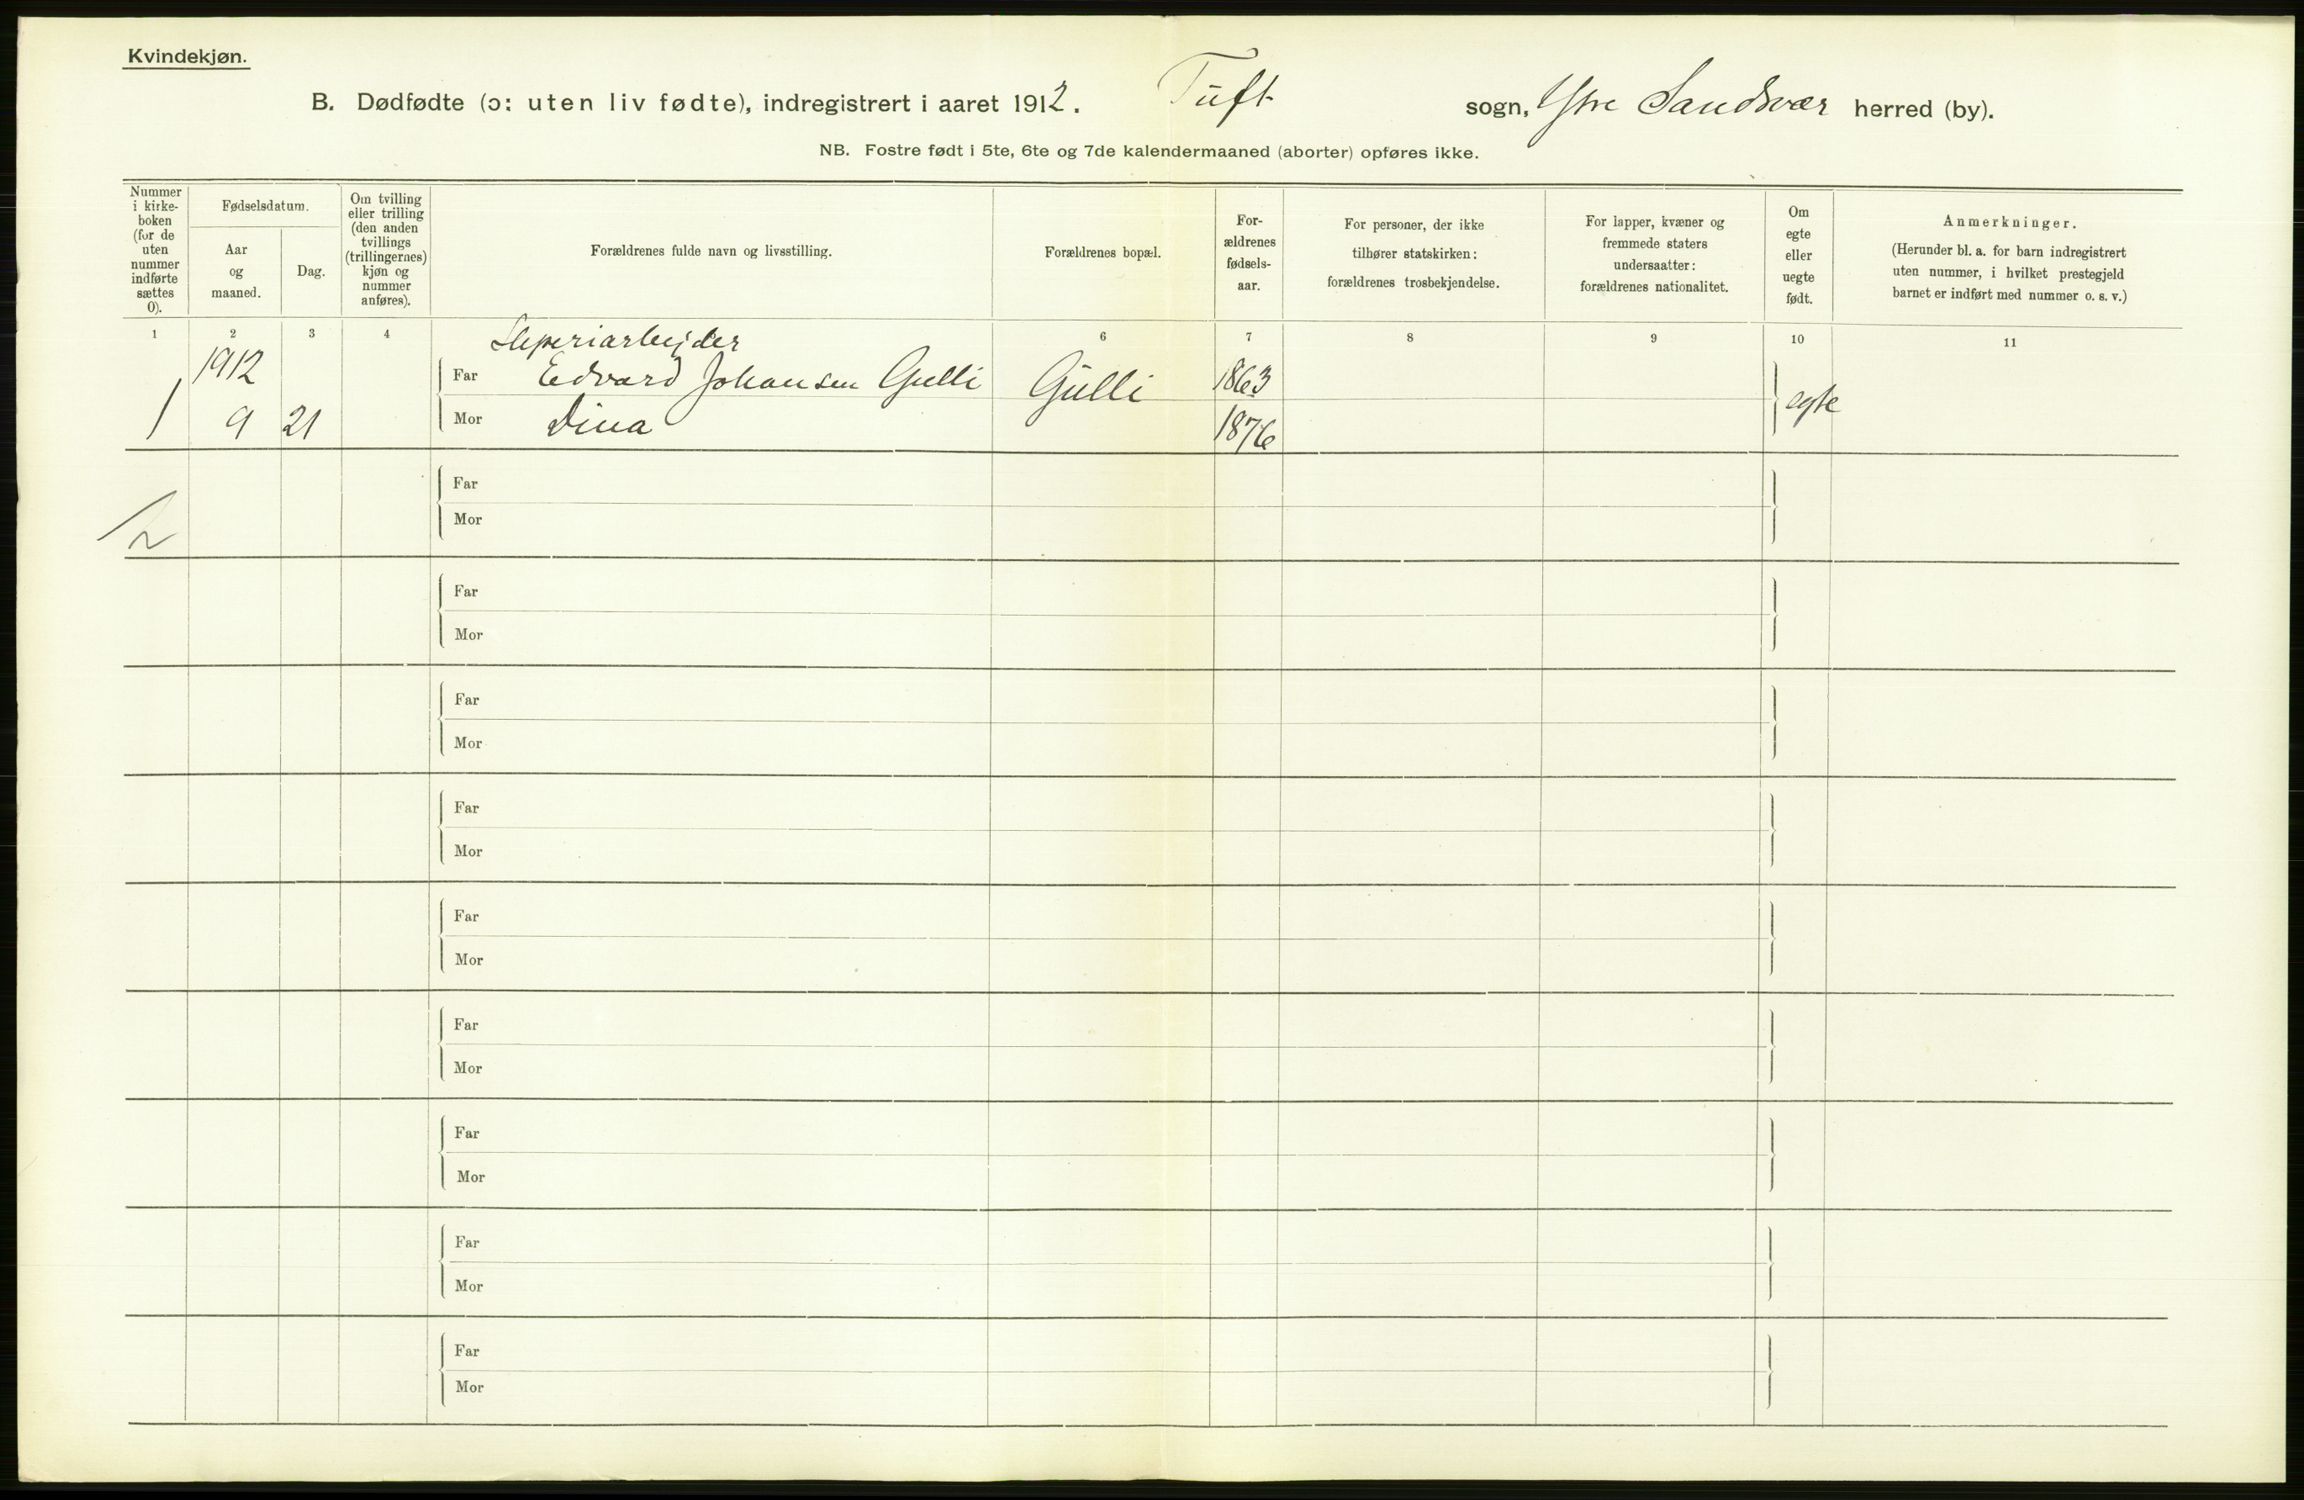 Kvindekjøn.
B. Dødfødte (ɔ: uten liv fødte), indregistrert i aaret 1912. Tuft sogn, Ytre Sandsvær herred (by).
NB. Fostre født i 5te, 6te og 7de kalendermaaned (aborter) opføres ikke.
Nummer
i kirke-
boken
(for de
uten
nummer
indførte
sættes
0).
Fødselsdatum.
Aar
og
maaned.
Dag.
Om tvilling
eller trilling
(den anden
tvillings
(trillingernes)
kjøn og
nummer
anføres).
Forældrenes fulde navn og livsstilling.
Forældrenes bopæl.
For-
ældrenes
fødsels-
aar.
For personer, der ikke
tilhører statskirken:
forældrenes trosbekjendelse.
For lapper, kvæner og
fremmede staters
undersaatter:
forældrenes nationalitet.
Om
egte
eller
uegte
født.
Anmerkninger.
(Herunder bl. a. for barn indregistrert
uten nummer, i hvilket prestegjeld
barnet er indført med nummer o. s. v.)
1 2 3 4 6 7 8 9 10 11
Sliperiarbejder
1912 Far Edvard Johansen Gulli Gulli 1863 egte
1 9 21 Mor Dina 1876
Far
Mor
2
Far
Mor
Far
Mor
Far
Mor
Far
Mor
Far
Mor
Far
Mor
Far
Mor
Far
Mor